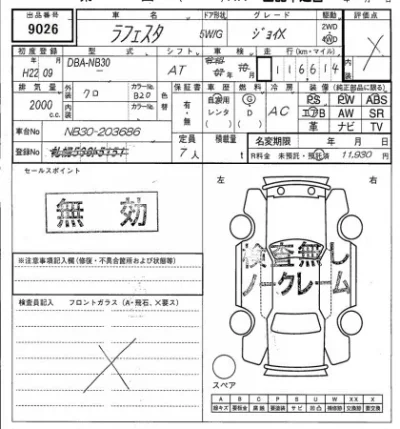 出品番号 車名 ドア形状 グレード 駆動 評価点
9026 ラフェスタ 5W/G ジョイX 2WD 4WD
初度登録 型式 シフト 車検 走行(km・マイル) 内装
年 月 H22 09 DBA-NB30 AT 年 月 116614
排気量 外装 カラーNo. 色替 保証書 車歴 燃料 冷房 装備(純正部品に限る)
2000 c.c. クロ B20 内装 カラーNo. 有・無 自家用 レンタ ( ) G D ( ) AC PS PW ABS
エアB AW SR
革 ナビ TV
車台No NB30-203686 定員 7人 積載量 t 名変期限 年 月 日
登録No R料金 未預託・預託済 11,930 円
セールスポイント
左 右
無効
検査無し
ノークレーム
※注意事項記入欄(修復・不具合箇所および状態等)
検査員記入 フロントガラス(A・飛石、X要ス)
スペア
A B C P S U W X XX
線キズ 要板金 腐蝕 要塗装 サビ 凹凸 補修跡 交換跡 要交換